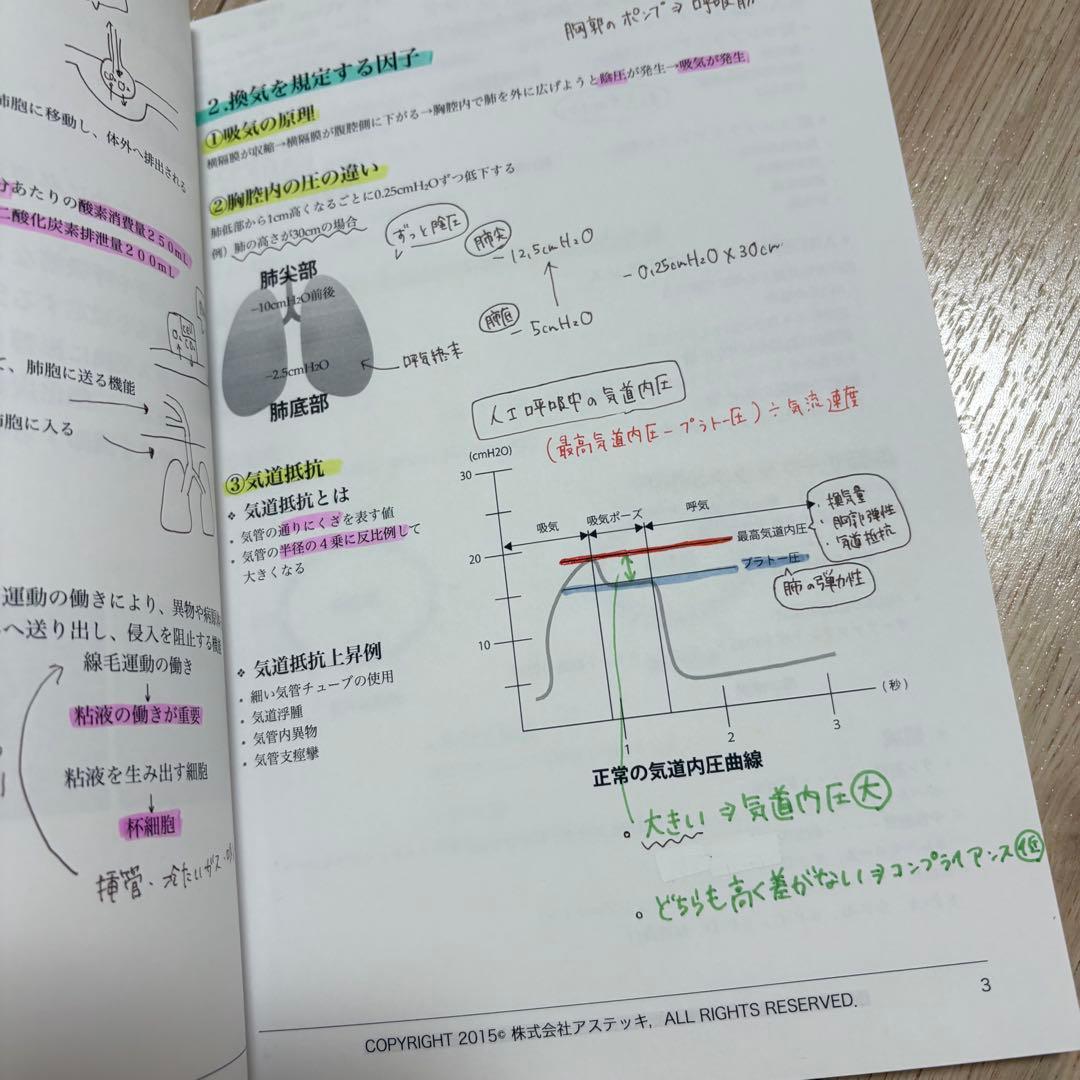 肺胞に移動し、体外へ排出される
分あたりの酸素消費量250mL
二酸化炭素排泄量200mL
て、肺胞に送る機能
胞に入る
運動の働きにより、異物や病原
へ送り出し、侵入を阻止する機能
線毛運動の働き
↓
粘液の働きが重要
粘液を生み出す細胞
↓
杯細胞
挿管・冷たいガス
胸郭のポンプ⇒呼吸筋
2.換気を規定する因子
①吸気の原理
横隔膜が収縮→横隔膜が腹腔側に下がる→胸腔内で肺を外に広げようと陰圧が発生→吸気が発生
②胸腔内の圧の違い
肺低部から1cm高くなるごとに0.25cmH2Oずつ低下する
例）肺の高さが30cmの場合
ずっと陰圧
肺尖
-12.5cmH2O
-0.25cmH2O×30cm
肺底
-5cmH2O
肺尖部
−10cmH2O前後
−2.5cmH2O
肺底部
呼気終末
人工呼吸中の気道内圧
(最高気道内圧-プラトー圧)÷気流速度
③気道抵抗
❖ 気道抵抗とは
・気管の通りにくさを表す値
・気管の半径の4乗に反比例して
大きくなる
❖ 気道抵抗上昇例
・細い気管チューブの使用
・気道浮腫
・気管内異物
・気管支痙攣
(cmH2O)
30
20
10
吸気
吸気ポーズ
呼気
最高気道内圧
プラトー圧
・換気量
・胸郭弾性
・気道抵抗
肺の弾力性
(秒)
1
2
3
正常の気道内圧曲線
。大きい⇒気道内圧大
。どちらも高く差がない⇒コンプライアンス低
3
COPYRIGHT 2015© 株式会社アステッキ, ALL RIGHTS RESERVED.